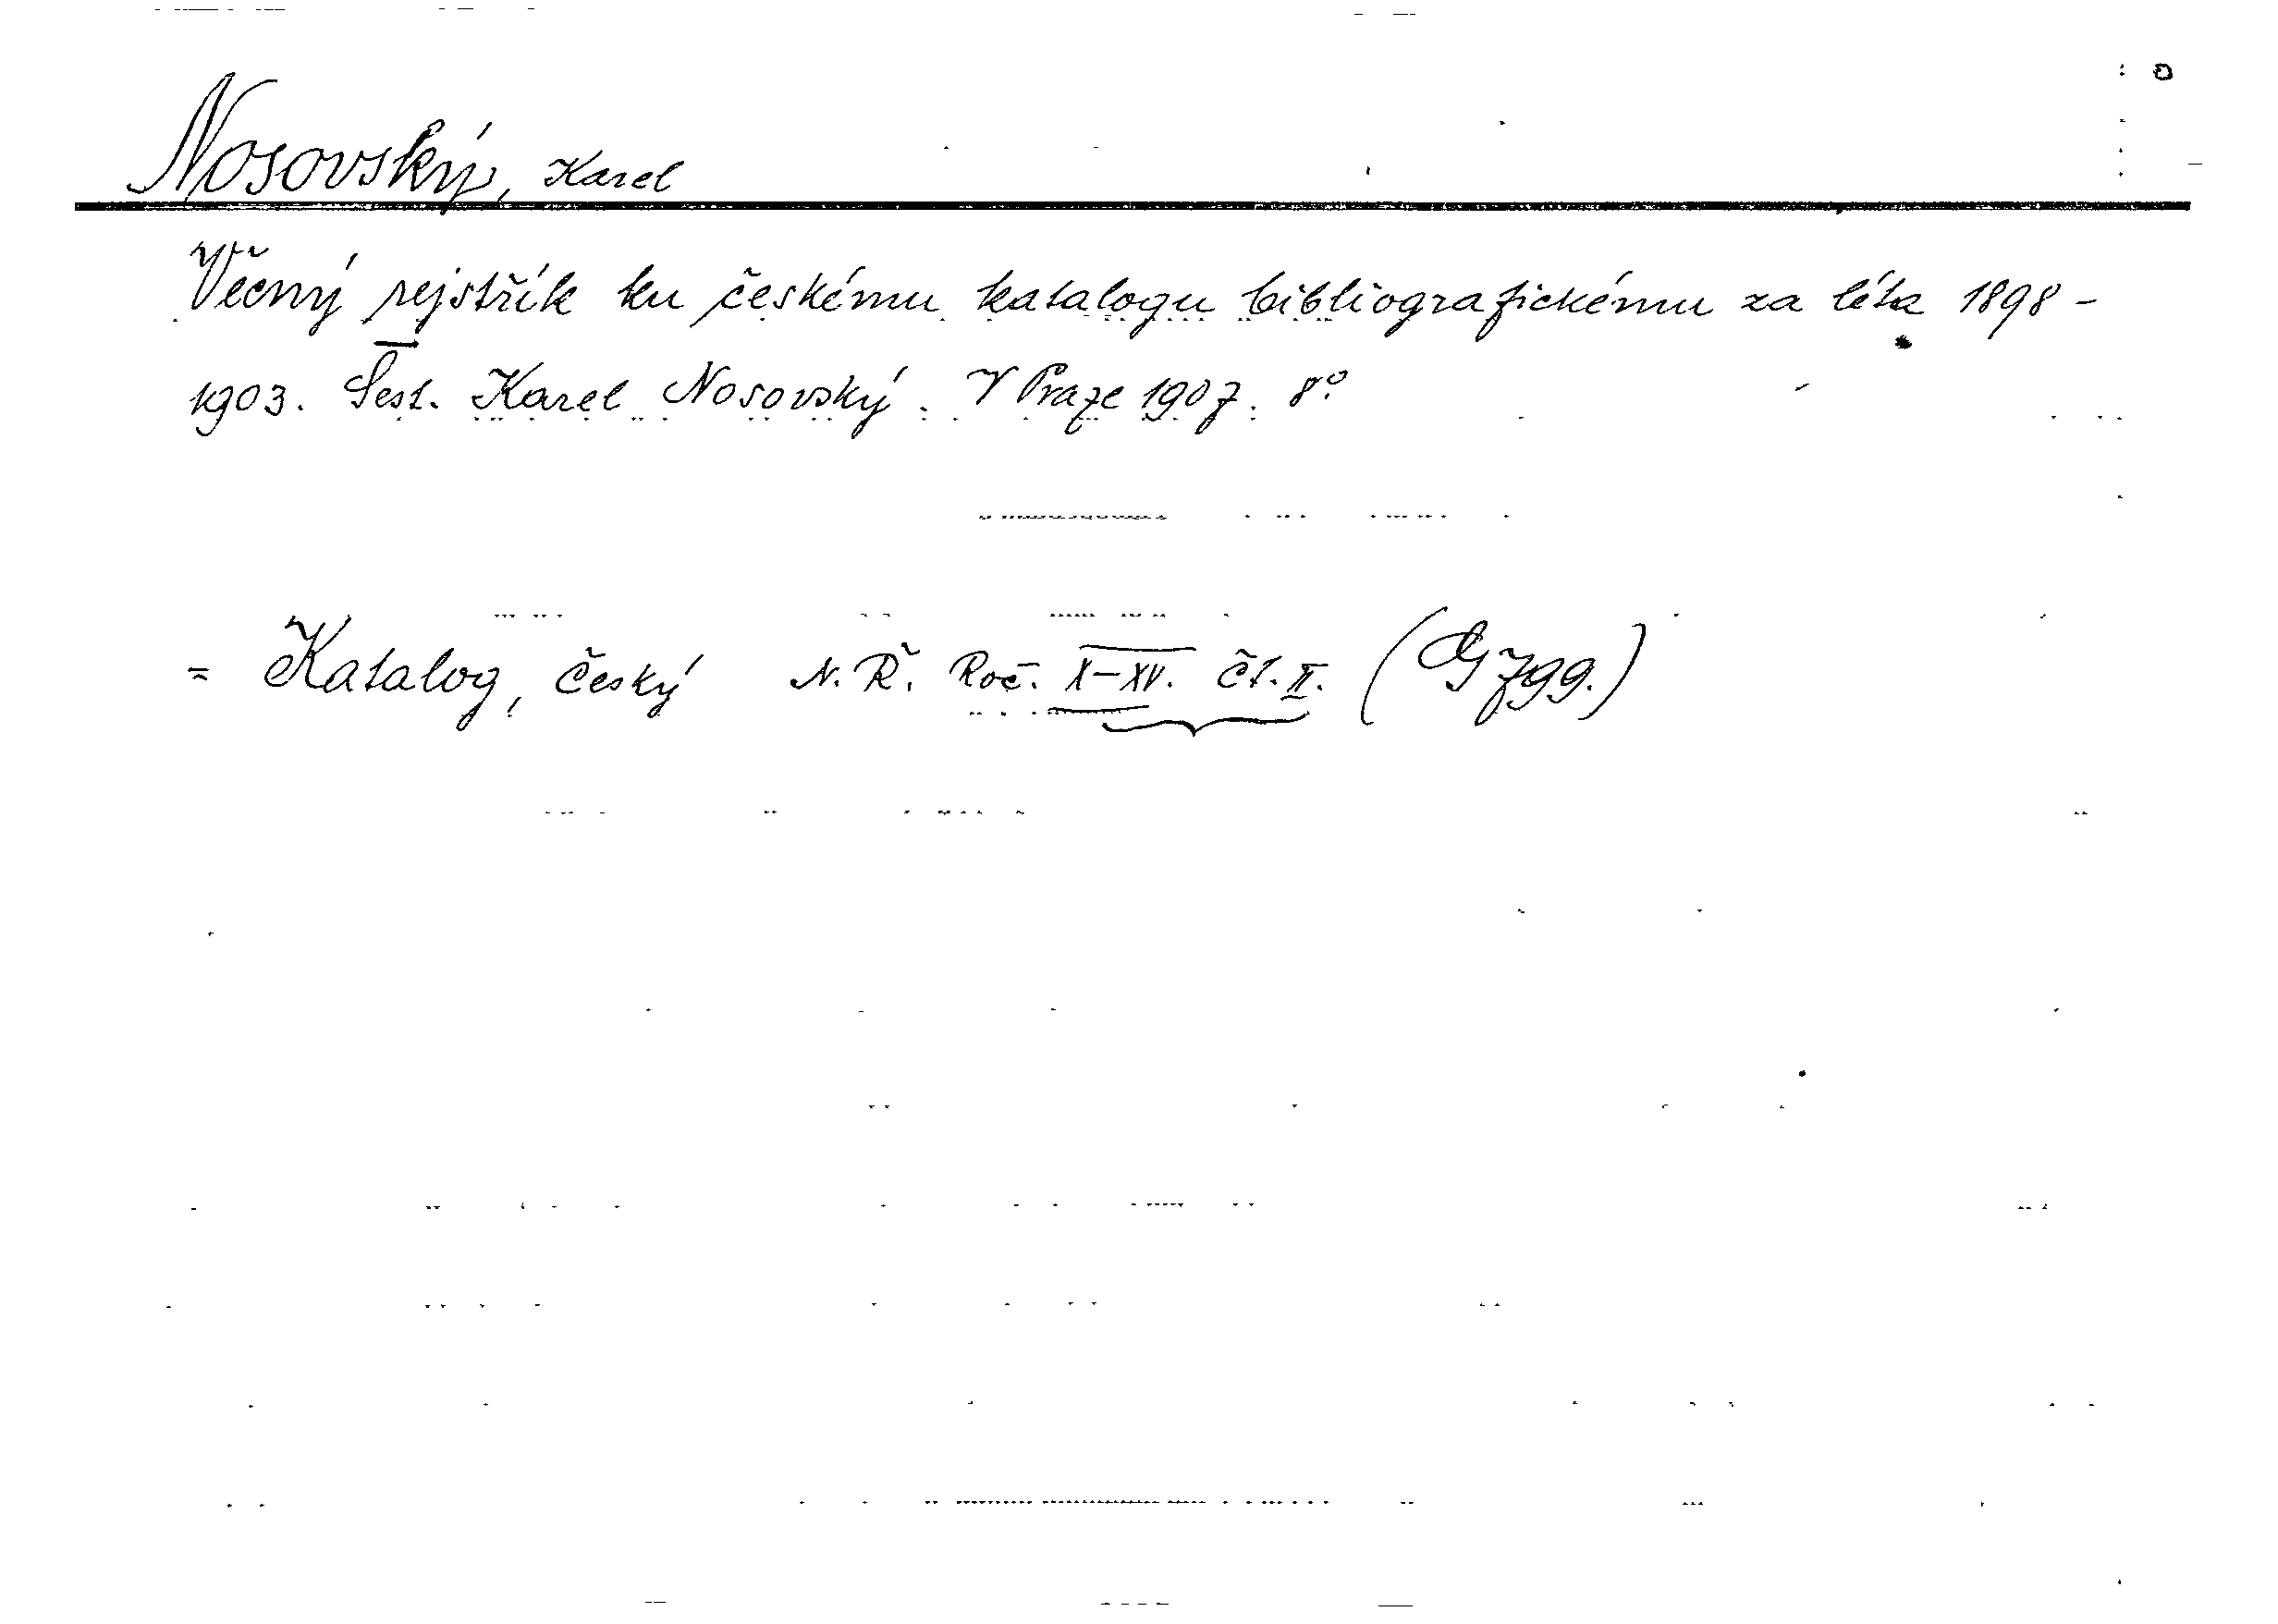 Nosovský, Karel
Věcný rejstřík ku českému katalogu bibliografickému za léta 1898-
1903. Sest. Karel Nosovský. V Praze 1907. 8°
= Katalog, český N. Ř. Roč. X-XV. čt. II. (G 799.)